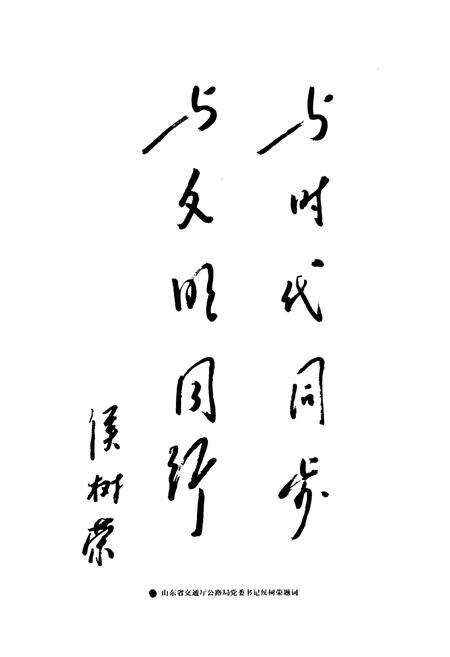 与时代同步
与文明同行
侯树荣
● 山东省交通厅公路局党委书记侯树荣题词